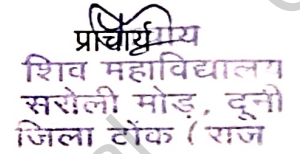 प्राचार्य
शिव महाविद्यालय
सरोली मोड़, दूनी
जिला टोंक (राज